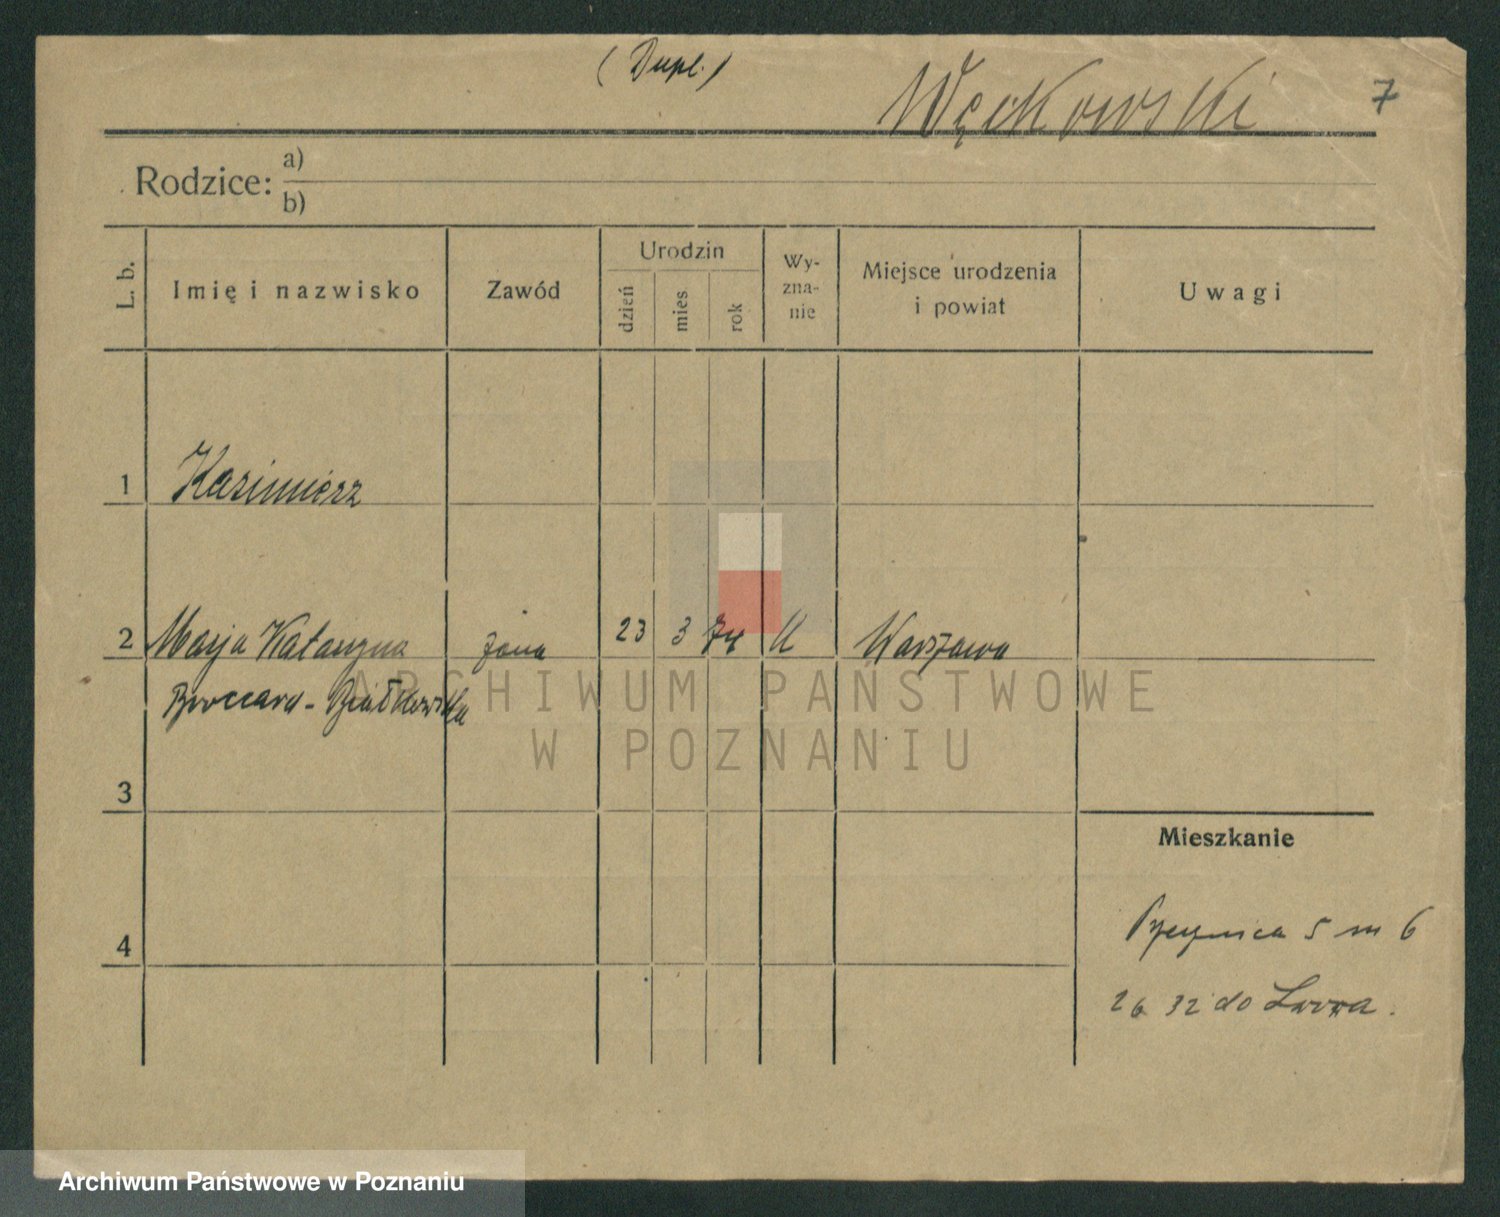 (Dupl.)
Węckowski 7
Rodzice: a)
b)
L. b. Imię i nazwisko Zawód Urodzin Wy-
zna-
nie Miejsce urodzenia
i powiat Uwagi
dzień mies rok
1 Kazimierz
2 Marja Katarzyna żona 23 3 74 K Warszawa
Broccard-
ARCHIWUM PAŃSTWOWE
W POZNANIU
3
Mieszkanie
4
5 m 6
26 32 do Lwowa.
Archiwum Państwowe w Poznaniu